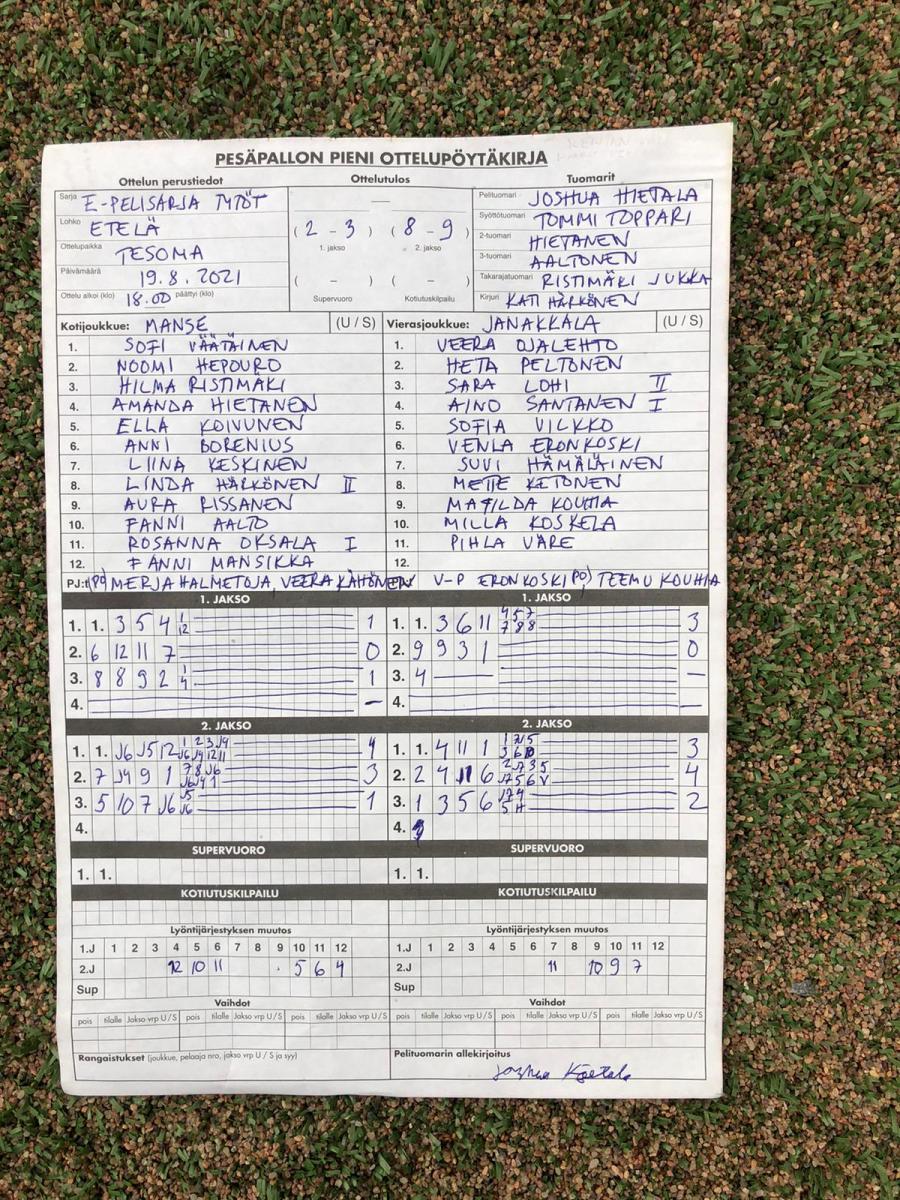 PESÄPALLON PIENI OTTELUPÖYTÄKIRJA
Ottelun perustiedot
Sarja E-PELISARJA TYTÖT
Lohko ETELÄ
Ottelupaikka TESOMA
Päivämäärä 19.8.2021
Ottelu alkoi (klo) 18.00 päättyi (klo)
Ottelutulos
( 2 - 3 ) ( 8 - 9 )
1. jakso 2. jakso
( - ) ( - )
Supervuoro Kotiutuskilpailu
Tuomarit
Pelituomari JOSHUA HIETALA
Syöttötuomari TOMMI TOPPARI
2-tuomari HIETANEN
3-tuomari AALTONEN
Takarajatuomari RISTIMÄKI JUKKA
Kirjuri KATI HÄRKÖNEN
Kotijoukkue: MANSE (U / S)
1. SOFI VÄÄTÄINEN
2. NOOMI HEPOURO
3. HILMA RISTIMÄKI
4. AMANDA HIETANEN
5. ELLA KOIVUNEN
6. ANNI BORENIUS
7. LIINA KESKINEN
8. LINDA HÄRKÖNEN II
9. AURA RISSANEN
10. FANNI AALTO
11. ROSANNA OKSALA I
12. FANNI MANSIKKA
PJ:t (PJ) MERJA HALMETOJA, VEERA KÄHÖNEN
Vierasjoukkue: JANAKKALA (U / S)
1. VEERA OJALEHTO
2. HETA PELTONEN
3. SARA LOHI II
4. AINO SANTANEN I
5. SOFIA VILKKO
6. VENLA ERONKOSKI
7. SUVI HÄMÄLÄINEN
8. METTE KETONEN
9. MATILDA KOUHIA
10. MILLA KOSKELA
11. PIHLA VARE
12.
V-P ERONKOSKI PJ) TEEMU KOUHIA
1. JAKSO
1. 1. 3 5 4 1 12 1
2. 6 12 11 7 0
3. 8 8 9 2 1 4 1
4. –
1. JAKSO
1. 1. 3 6 11 4 5 7 7 8 8 3
2. 9 9 3 1 0
3. 4 –
4. –
2. JAKSO
1. 1. J6 J5 12 1 2 3 J4 J6 J4 12 11 4
2. 7 J4 9 1 7 8 J6 J6 J4 1 3
3. 5 10 7 J6 J5 J6 1
4.
2. JAKSO
1. 1. 4 11 1 3
2. 2 4 6 4
3. 1 3 5 6 2
4.
SUPERVUORO
1. 1.
SUPERVUORO
1. 1.
KOTIUTUSKILPAILU
Lyöntijärjestyksen muutos
1.J 1 2 3 4 5 6 7 8 9 10 11 12
2.J 12 10 11 5 6 4
Sup
KOTIUTUSKILPAILU
Lyöntijärjestyksen muutos
1.J 1 2 3 4 5 6 7 8 9 10 11 12
2.J 11 10 9 7
Sup
Vaihdot
pois tilalle Jakso vrp U / S pois tilalle Jakso vrp U / S pois tilalle Jakso vrp U / S
Vaihdot
pois tilalle Jakso vrp U / S pois tilalle Jakso vrp U / S pois tilalle Jakso vrp U / S
Rangaistukset (joukkue, pelaaja nro, jakso vrp U / S ja syy)
Pelituomarin allekirjoitus